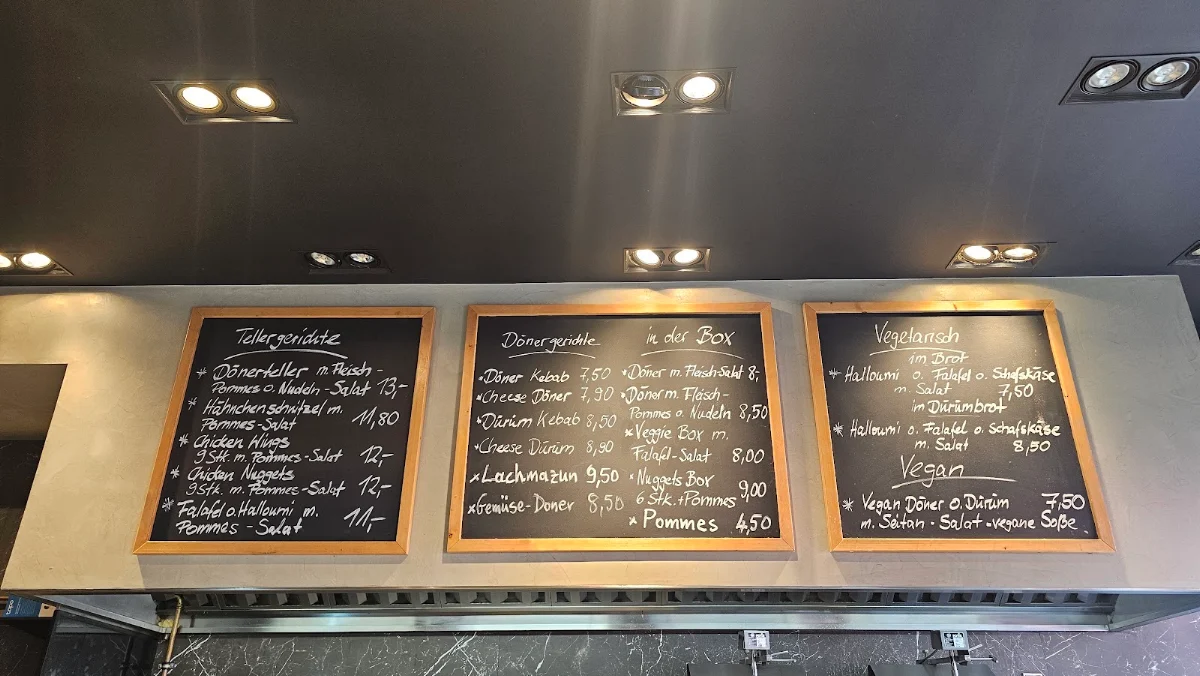 Tellergerichte
* Dönerteller m. Fleisch -
Pommes o. Nudeln - Salat 13,-
* Hähnchenschnitzel m.
Pommes-Salat 11,80
* Chicken Wings
9 Stk. m. Pommes-Salat 12,-
* Chicken Nuggets
9 Stk. m. Pommes-Salat 12,-
* Falafel o. Halloumi m.
Pommes - Salat 11,-
Dönergerichte
* Döner Kebab 7,50
* Cheese Döner 7,90
* Dürüm Kebab 8,50
* Cheese Dürüm 8,90
* Lachmazun 9,50
* Gemüse-Döner 8,50
in der Box
* Döner m. Fleisch-Salat 8,-
* Döner m. Fleisch-
Pommes o. Nudeln 8,50
* Veggie Box m.
Falafel-Salat 8,00
* Nuggets Box
6 Stk. + Pommes 9,00
* Pommes 4,50
Vegetarisch
im Brot
* Halloumi o. Falafel o. Schafskäse
m. Salat 7,50
im Dürümbrot
* Halloumi o. Falafel o. Schafskäse
m. Salat 8,50
Vegan
* Vegan Döner o. Dürüm 7,50
m. Seitan - Salat - vegane Soße